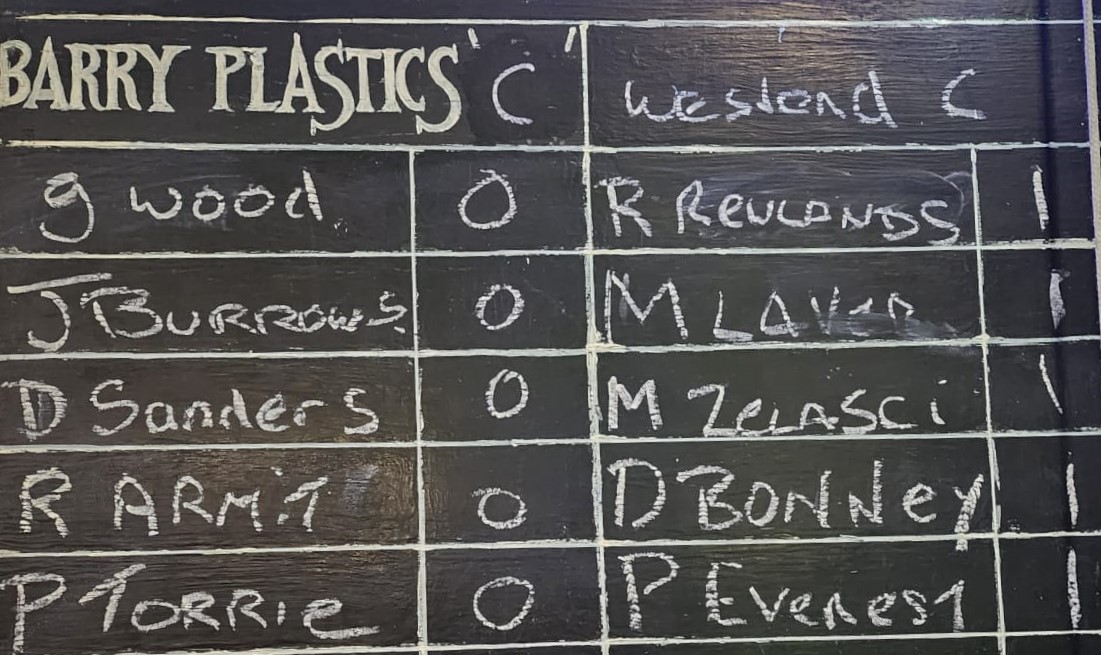 BARRY PLASTICS 'C' Westend C
g wood 0 R Rewlands 1
J BURROWS 0 M LAVER 1
D Sanders 0 M ZELASCi 1
R ARMIT 0 D BONNey 1
P TORRie 0 P Everest 1